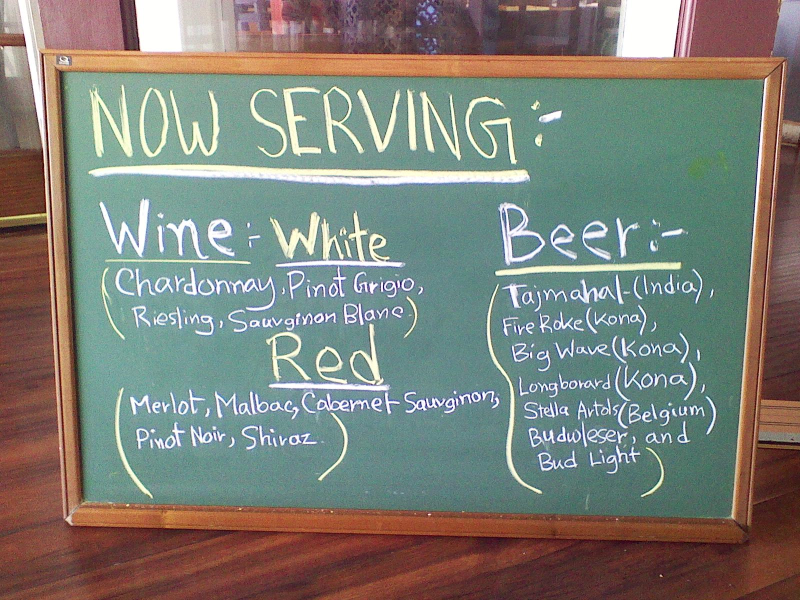 NOW SERVING:-
Wine:- White
(Chardonnay, Pinot Grigio,
Riesling, Sauvginon Blanc)
Red
(Merlot, Malbac, Cabernet Sauvginon,
Pinot Noir, Shiraz.)
Beer:-
(Tajmahal-(India),
Fire Roke (Kona),
Big Wave (Kona),
Longborard (Kona),
Stella Artols (Belgium)
Budwleser, and
Bud Light)